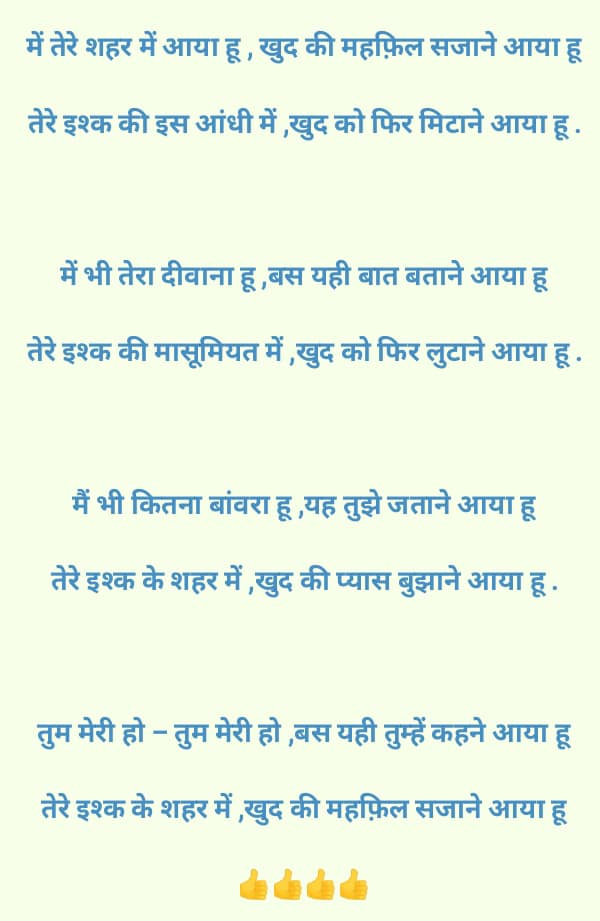 में तेरे शहर में आया हू , खुद की महफ़िल सजाने आया हू
तेरे इश्क की इस आंधी में ,खुद को फिर मिटाने आया हू .
में भी तेरा दीवाना हू ,बस यही बात बताने आया हू
तेरे इश्क की मासूमियत में ,खुद को फिर लुटाने आया हू .
मैं भी कितना बांवरा हू ,यह तुझे जताने आया हू
तेरे इश्क के शहर में ,खुद की प्यास बुझाने आया हू .
तुम मेरी हो – तुम मेरी हो ,बस यही तुम्हें कहने आया हू
तेरे इश्क के शहर में ,खुद की महफ़िल सजाने आया हू
👍👍👍👍